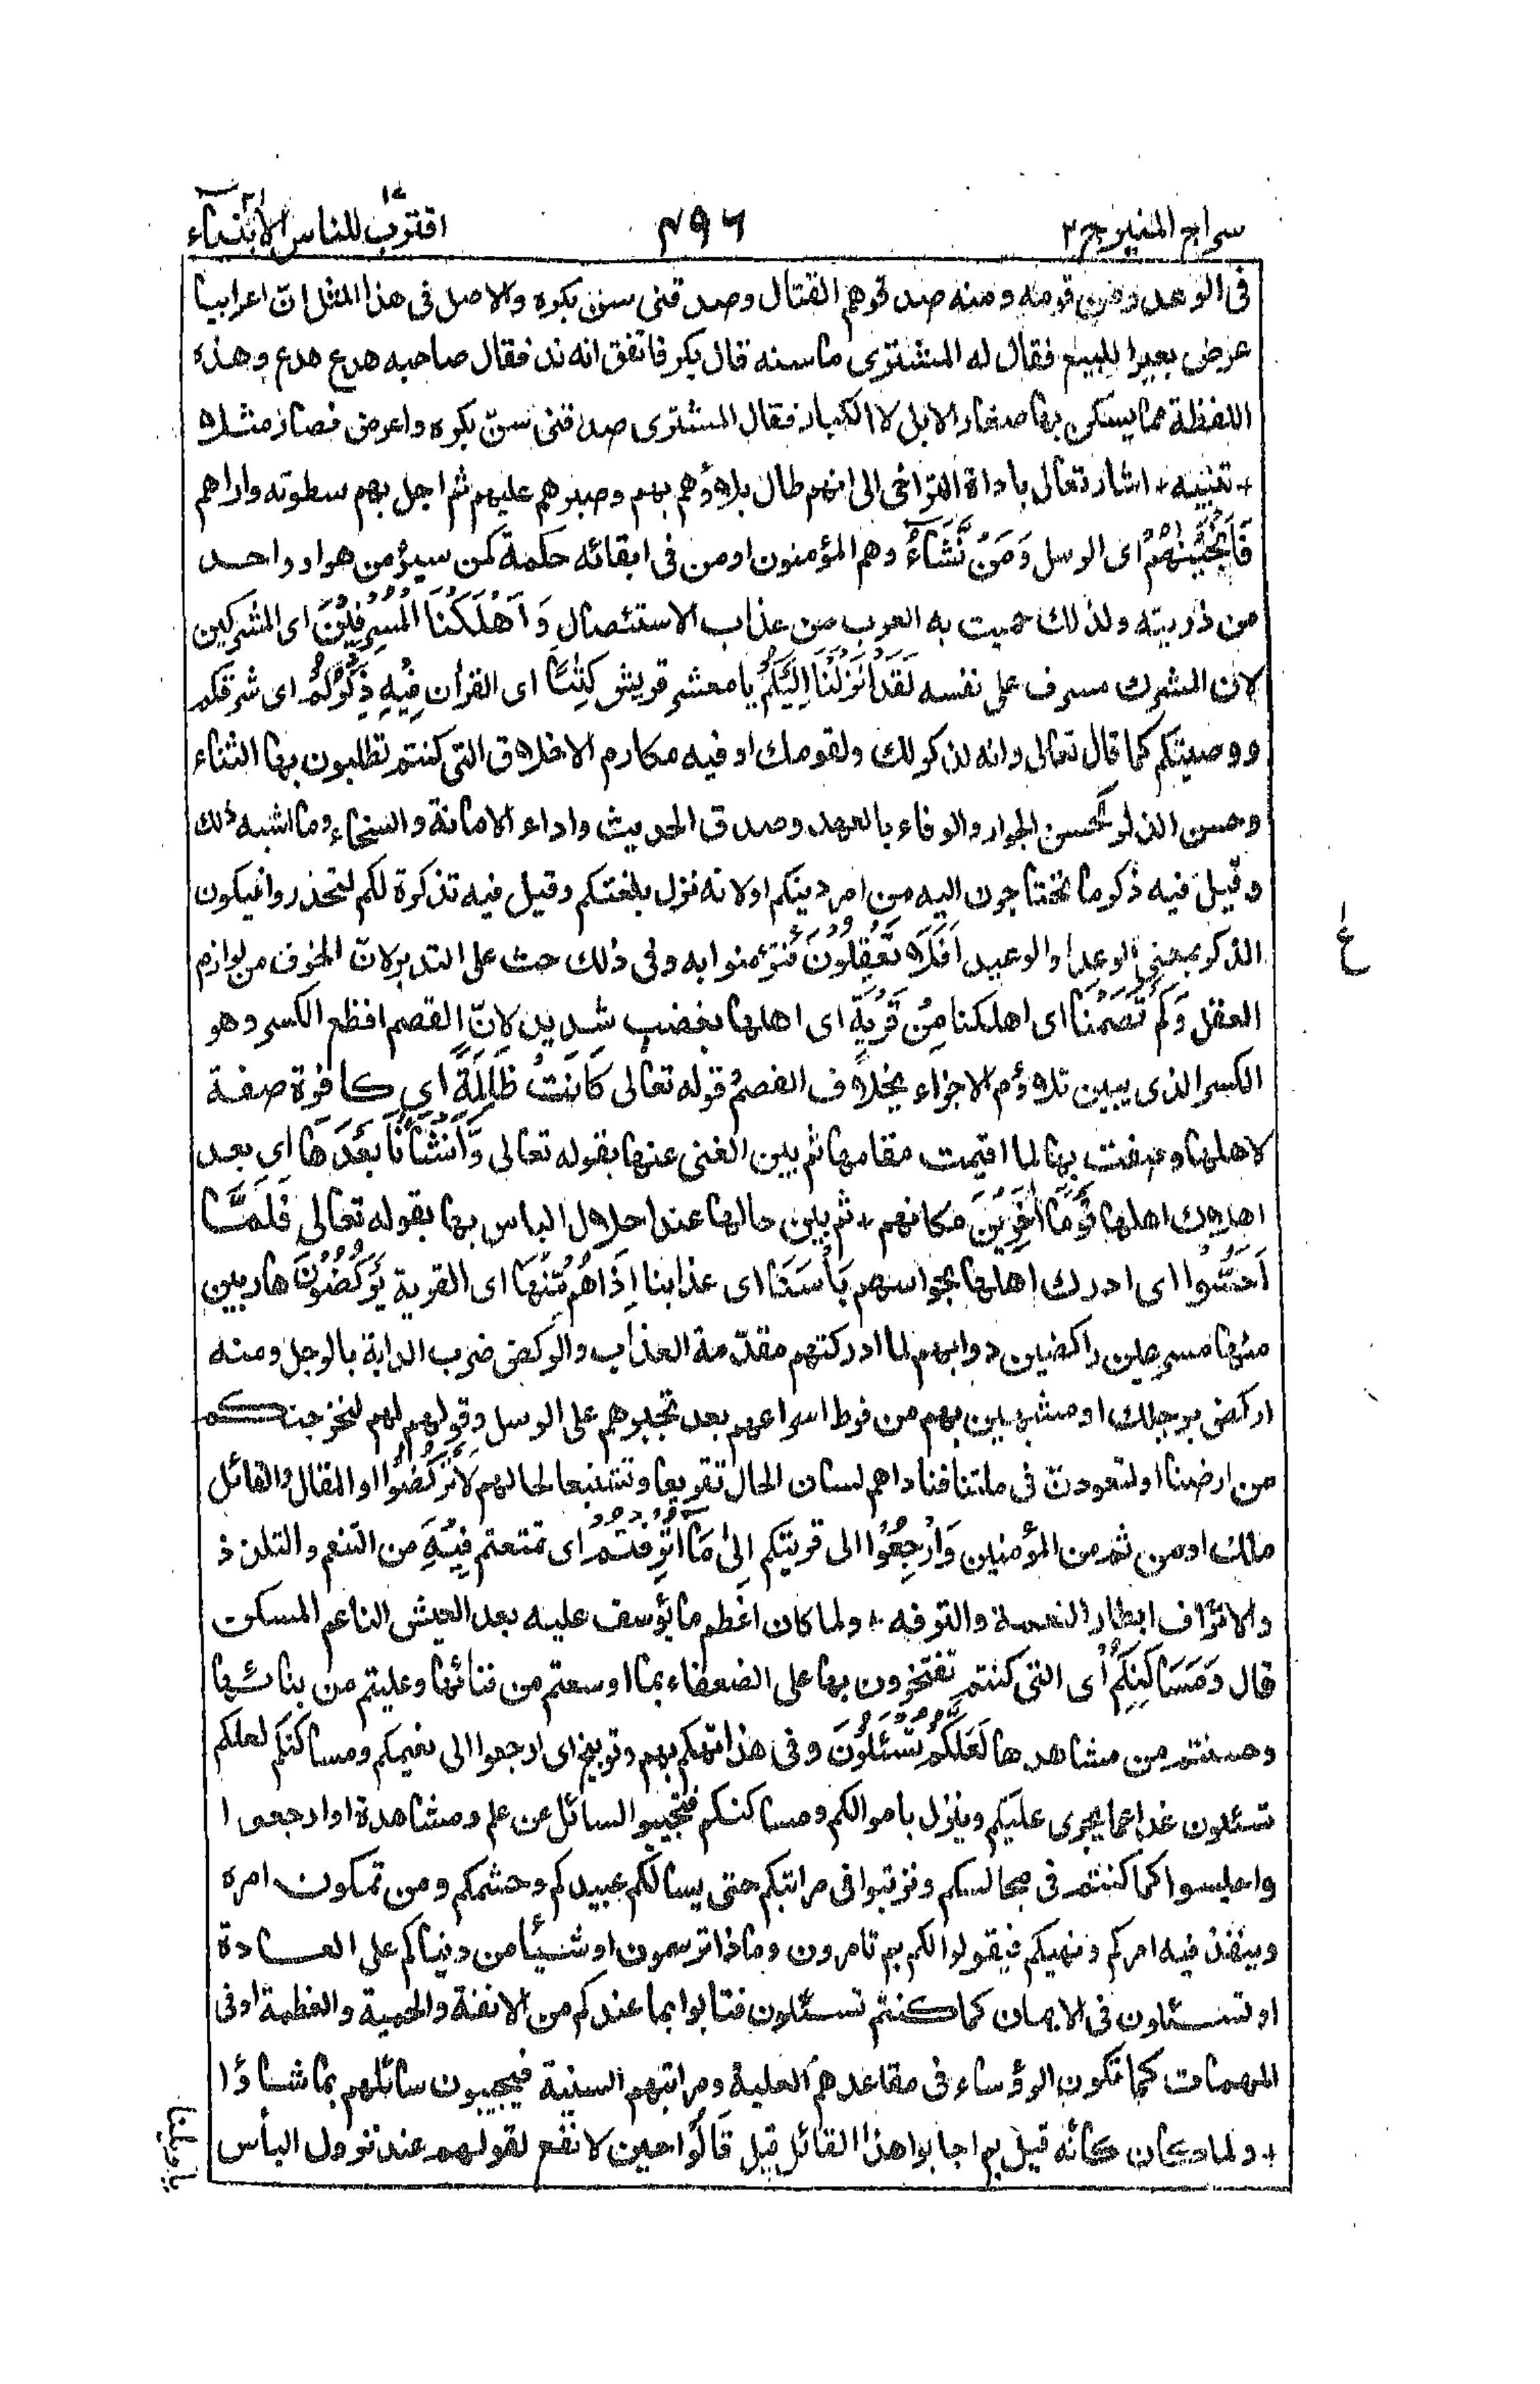 سراج المنير ج ٣
٤٩٦
اقترب للناس ١٧ الأنبياء ٢١
فى الوعد ومن قومه ومنه صدقوهم القتال وصدقنى سن بكره والاصل فى هذا المثل انّ اعرابيا
عرض بعيرا للبيع فقال له المشترى ما سنه قال بكر فاتفق انه ند فقال صاحبه هدع هدع وهذه
اللفظة مما يسكن بها صغار الابل لا الكبار فقال المشترى صدقنى سنّ بكره واعرض فصار مثلا
+ تنبيه + اشار تعالى باداة التراخى الى انهم طال بلاؤهم بهم وصبرهم عليهم ثم احل بهم سطوته واراهم
فَاَنْجَيْنٰهُمْ اى الرسل وَمَنْ نَّشَآءُ وهم المؤمنون او من فى ابقائه حكمة كمن سيؤمن هو او واحد
من ذريته ولذلك حميت به العرب من عذاب الاستئصال وَاَهْلَكْنَا الْمُسْرِفِيْنَ اى المشركين
لان المشرك مسرف على نفسه لَقَدْ اَنْزَلْنَا اِلَيْكُمْ يا معشر قريش كِتٰبًا اى القرأن فِيْهِ ذِكْرُكُمْ اى شرفكم
ووصيتكم كما قال تعالى وانه لذكر لك ولقومك او فيه مكارم الاخلاق التى كنتم تطلبون بها الثناء
وحسن الذكر كحسن الجوار والوفاء بالعهد وصدق الحديث واداء الامانة والسخاء وما اشبه ذلك
وقيل فيه ذكر ما تحتاجون اليه من امر دينكم اولانه نزل بلغتكم وقيل فيه تذكرة لكم لتحذروا فيكون
الذكر بمعنى الوعد والوعيد اَفَلَا تَعْقِلُوْنَ فتؤمنوا به وفى ذلك حث على التدبر لانّ الخوف من لوازم
العقل وَكَمْ قَصَمْنَا اى اهلكنا مِنْ قَرْيَةٍ اى اهلها بغضب شديد لانّ القصم افظع الكسر وهو
الكسر الذى يبين تلاؤم الاجزاء بخلاف الفصم قوله تعالى كَانَتْ ظَالِمَةً اى كافرة صفة
لاهلها وصفت بها لما اقيمت مقامها ثم بين الغنى عنها بقوله تعالى وَّاَنْشَاْنَا بَعْدَهَا اى بعد
اهلاك اهلها قَوْمًا اٰخَرِيْنَ مكانهم + ثم بين حالها عند احلال الباس بها بقوله تعالى فَلَمَّآ
اَحَسُّوْا اى ادرك اهلها بحواسهم بَاْسَنَا اى عذابنا اِذَا هُمْ مِّنْهَا اى القرية يَرْكُضُوْنَ هاربين
منها مسرعين راكضين دوابهم لما ادركتهم مقدّمة العذاب والركض ضرب الدابة بالرجل ومنه
اركض برجلك او مشبهين بهم من فرط اسراعهم بعد تجبرهم على الرسل وقولهم لهم لنخرجنكم
من ارضنا او لتعودن فى ملتنا فناداهم لسان الحال تقريعا وتشنيعا لحالهم لَا تَرْكُضُوْا او المقال والقائل
ملك او من ثم من المؤمنين وَارْجِعُوْا الى قريتكم اِلٰى مَآ اُتْرِفْتُمْ اى تمتعتم فِيْهِ من التنعم والتلذذ
والاتراف ابطار النعمة والترفه + ولما كان اعظم ما يؤسف عليه بعد العيش الناعم المسكن
قال وَمَسَاكِنِكُمْ اى التى كنتم تفتخرون بها على الضعفاء بما اوسعتم من فنائها وعليتم من بنائها
وحسنتم من مشاهدها لَعَلَّكُمْ تُسْئَلُوْنَ وفى هذا تهكم بهم وتوبيخ اى ارجعوا الى نعيمكم ومساكنكم لعلكم
تسئلون غدا عما يجرى عليكم وينزل باموالكم ومساكنكم فتجيبوا السائل عن علم ومشاهدة او ارجعوا
واجلسوا كما كنتم فى مجالسكم وترتبوا فى مراتبكم حتى يسالكم عبيدكم وحشمكم ومن تملكون امره
وينفذ فيه امركم ونهيكم فيقولوا لكم بم تامرون وماذا ترسمون او شيئا من دنياكم على العادة
او تسئلون فى الايمان كما كنتم تسئلون فتابوا بما عندكم من الانفة والحمية والعظمة او فى
المهمات كما تكون الرؤساء فى مقاعدهم العلية ومراتبهم السنية فيجيبون سائلهم بما شاؤا
+ ولما كان كأنه قيل بم اجابوا هذا القائل قيل قَالُوْا حين لا نفع لقولهم عند نزول البأس
ع
يا ويلنا